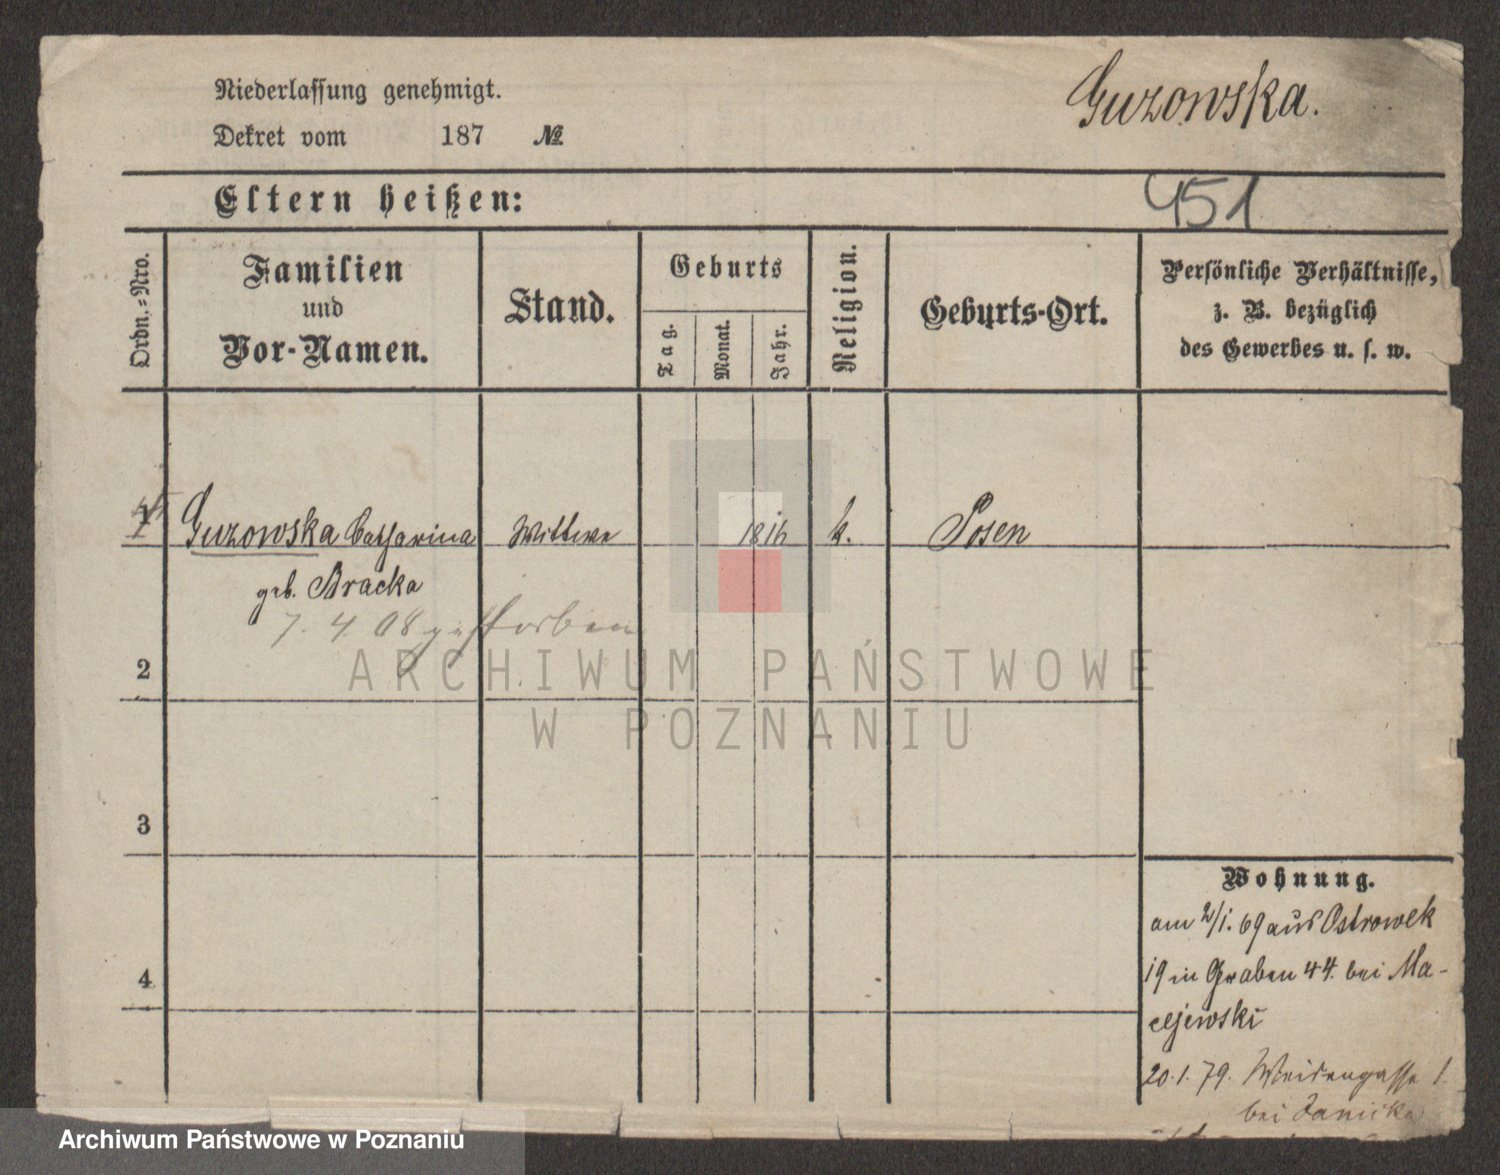 Niederlassung genehmigt.
Guzowska.
Dekret vom 187 №
Eltern heißen:
451
Ordn.=Nro.
Familien
und
Vor-Namen.
Stand.
Geburts
Tag.
Monat.
Jahr.
Religion.
Geburts-Ort.
Persönliche Verhältnisse,
z. B. bezüglich
des Gewerbes u. s. w.
1 Guzowska Catharina Wittwe 1816 k. Posen
geb. Bracka
7. 4. 08 gestorben
2
3
4
Wohnung.
am 2/1. 69 aus Ostrowek
19 in Graben 44. bei Ma-
cejewski
20. 1. 79. Weidengasse 1.
bei
ARCHIWUM PAŃSTWOWE
W POZNANIU
Archiwum Państwowe w Poznaniu